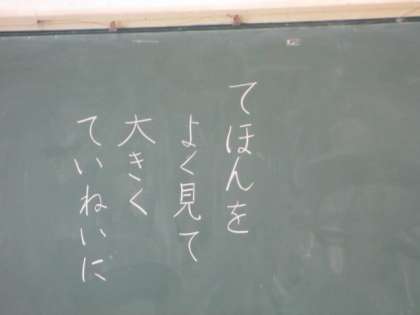 てほんを
よく見て
大きく
ていねいに